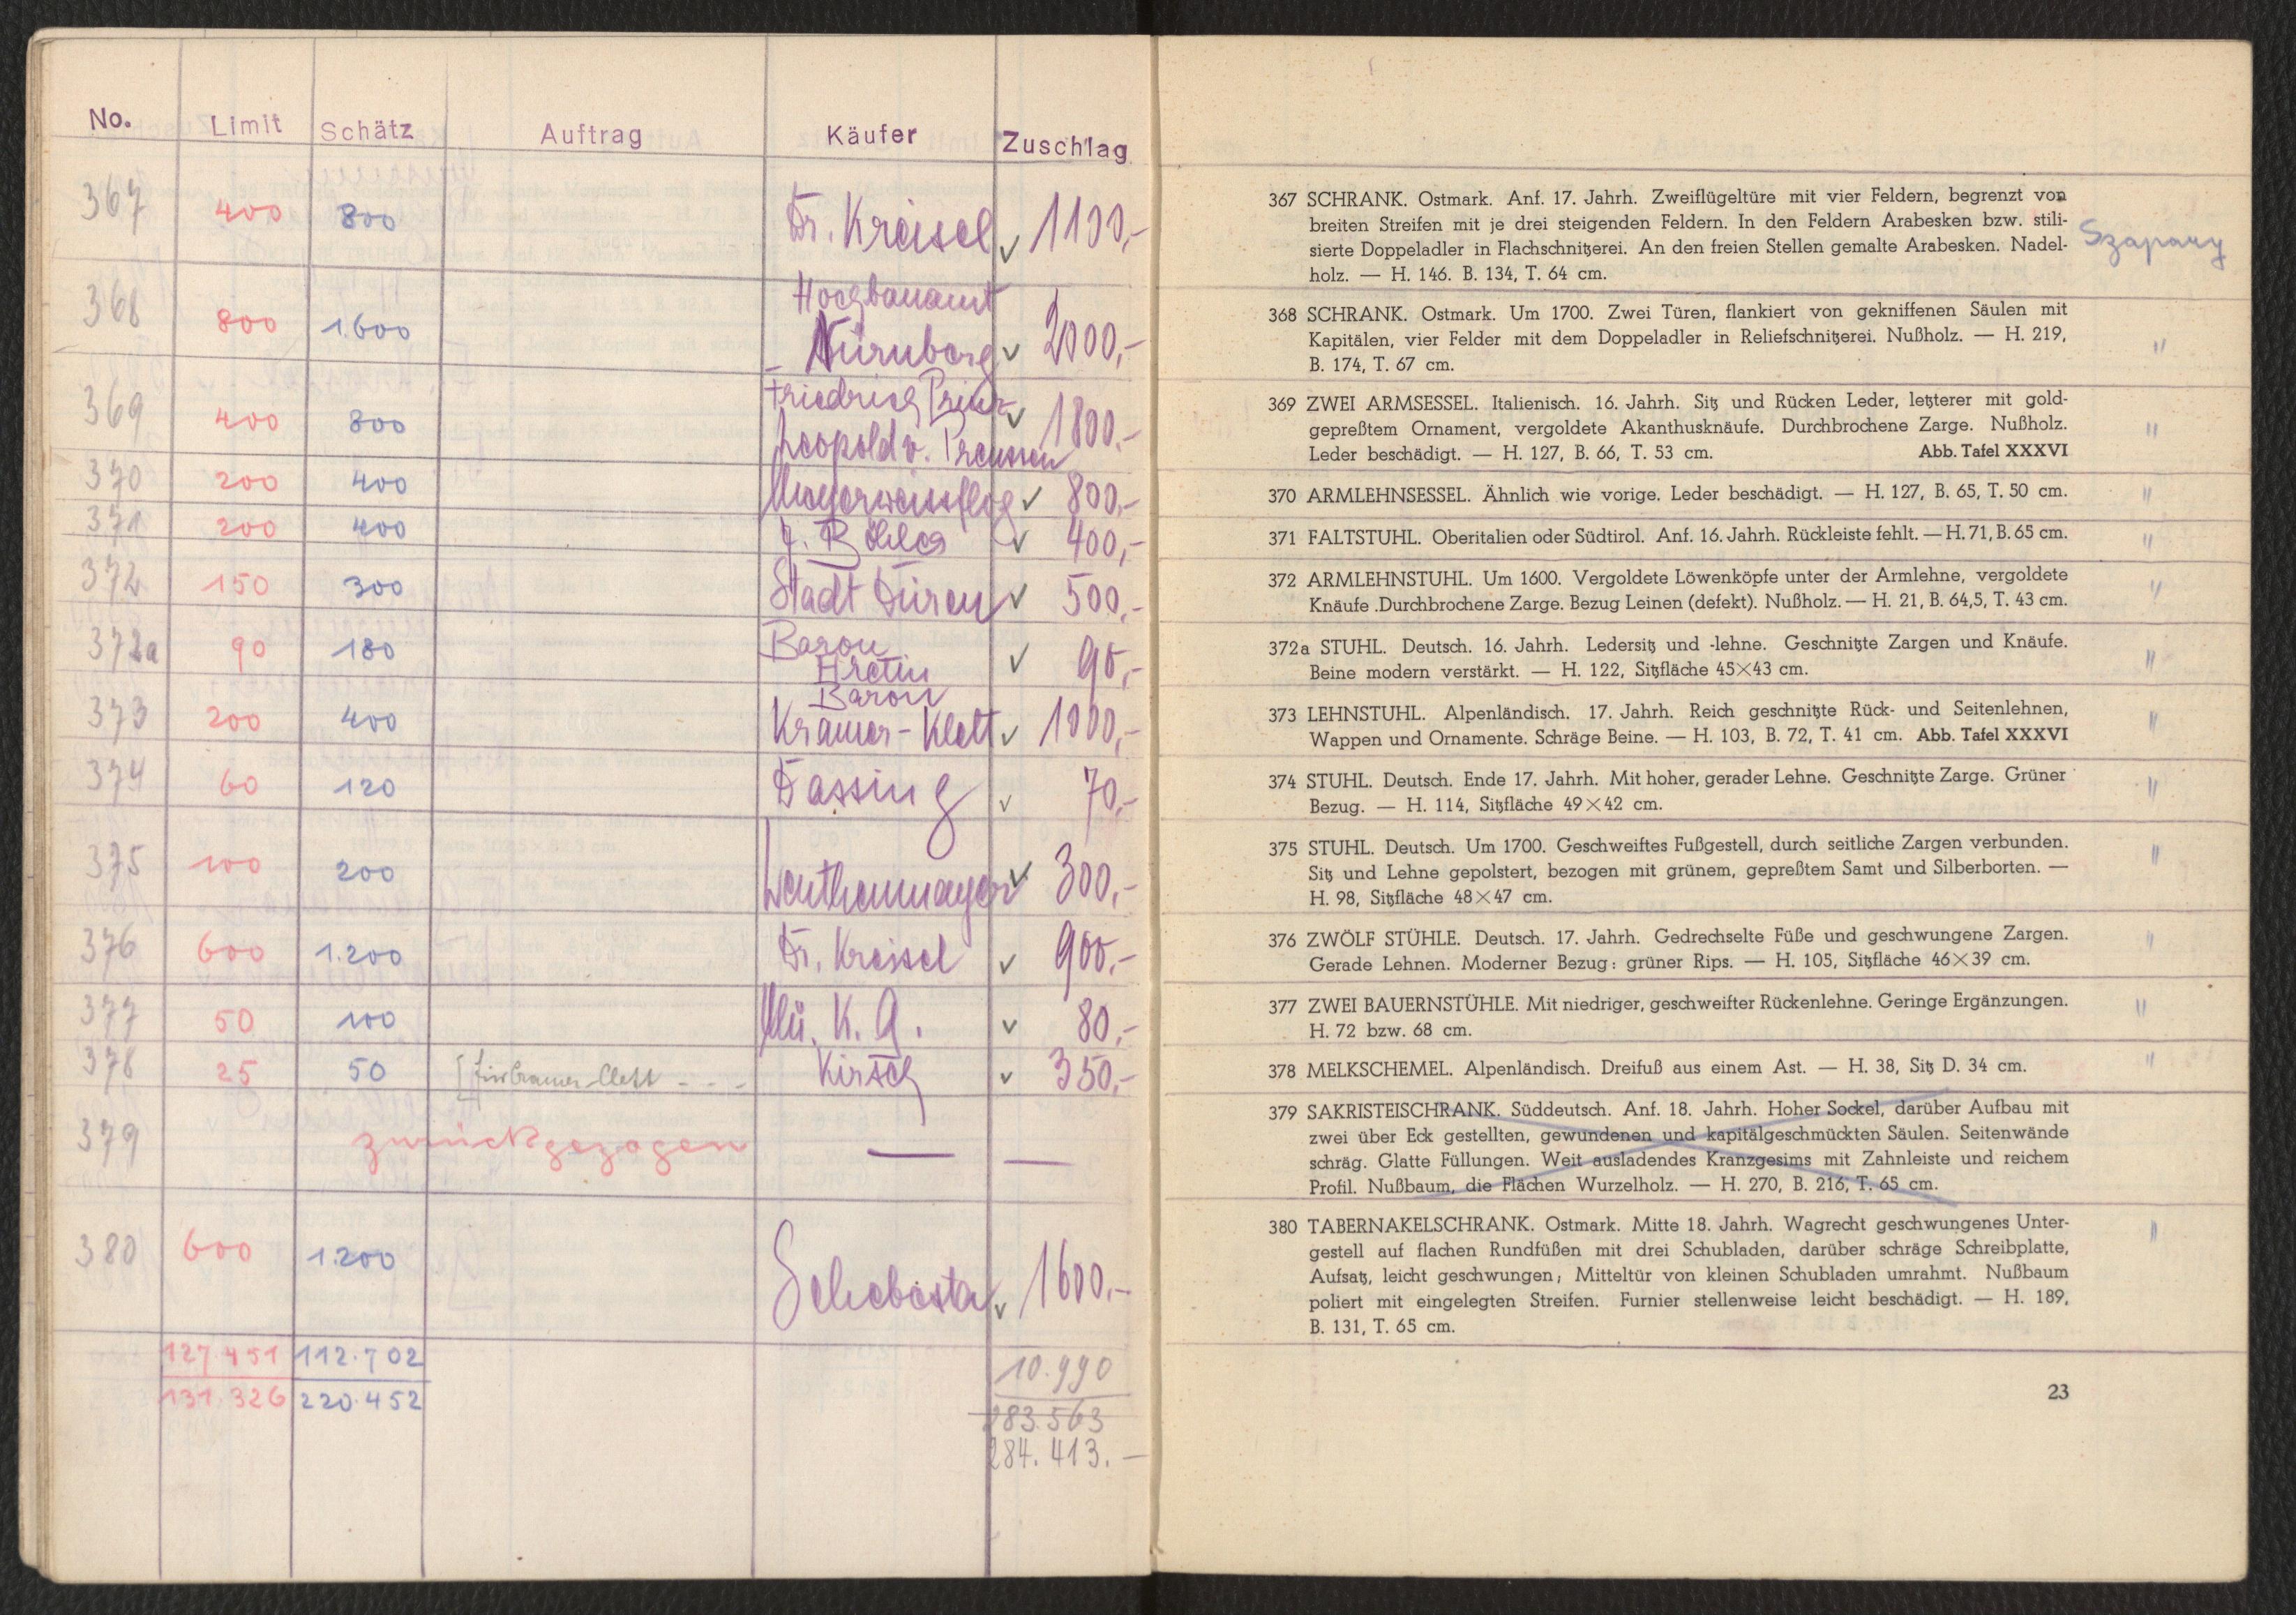 No. Limit Schätz Auftrag Käufer Zuschlag
367 400 800 Dr. Kreisel ✓ 1100,-
368 800 1.600 Hochbauamt
Nürnberg ✓ 2000,-
369 400 800 Friedrich Prinz ✓ 1800.-
Leopold v. Preussen
370 200 400 Mayerweissflog ✓ 800,-
371 200 400 J. Böhler ✓ 400,-
372 150 300 Stadt Düren ✓ 500,-
372a 90 180 Baron
Aretin ✓ 90,-
373 200 400 Baron
Kramer-Klett ✓ 1000,-
374 60 120 Dassing ✓ 70,-
375 100 200 Leuthenmayer ✓ 300,-
376 600 1.200 Dr. Kreisel ✓ 900.-
377 50 100 Mü. K. A. ✓ 80,-
378 25 50 Cramer-Clett - - - Kirsch ✓ 350,-
379 zurückgezogen — —
380 600 1.200 Schebesta ✓ 1600.-
127.451 112.702 10.990
131.326 220.452 283.563
284.413.—
367 SCHRANK. Ostmark. Anf. 17. Jahrh. Zweiflügeltüre mit vier Feldern, begrenzt von
breiten Streifen mit je drei steigenden Feldern. In den Feldern Arabesken bzw. stili-
sierte Doppeladler in Flachschnitzerei. An den freien Stellen gemalte Arabesken. Nadel-
holz. — H. 146. B. 134, T. 64 cm.
Szapary
368 SCHRANK. Ostmark. Um 1700. Zwei Türen, flankiert von gekniffenen Säulen mit
Kapitälen, vier Felder mit dem Doppeladler in Reliefschnitzerei. Nußholz. — H. 219,
B. 174, T. 67 cm.
"
369 ZWEI ARMSESSEL. Italienisch. 16. Jahrh. Sitz und Rücken Leder, letzterer mit gold-
gepreßtem Ornament, vergoldete Akanthusknäufe. Durchbrochene Zarge. Nußholz.
Leder beschädigt. — H. 127, B. 66, T. 53 cm. Abb. Tafel XXXVI
"
370 ARMLEHNSESSEL. Ähnlich wie vorige. Leder beschädigt. — H. 127, B. 65, T. 50 cm. "
371 FALTSTUHL. Oberitalien oder Südtirol. Anf. 16. Jahrh. Rückleiste fehlt. — H. 71, B. 65 cm. "
372 ARMLEHNSTUHL. Um 1600. Vergoldete Löwenköpfe unter der Armlehne, vergoldete "
Knäufe .Durchbrochene Zarge. Bezug Leinen (defekt). Nußholz. — H. 21, B. 64,5, T. 43 cm.
372a STUHL. Deutsch. 16. Jahrh. Ledersitz und -lehne. Geschnitzte Zargen und Knäufe. "
Beine modern verstärkt. — H. 122, Sitzfläche 45×43 cm.
373 LEHNSTUHL. Alpenländisch. 17. Jahrh. Reich geschnitzte Rück- und Seitenlehnen, "
Wappen und Ornamente. Schräge Beine. — H. 103, B. 72, T. 41 cm. Abb. Tafel XXXVI
374 STUHL. Deutsch. Ende 17. Jahrh. Mit hoher, gerader Lehne. Geschnitzte Zarge. Grüner "
Bezug. — H. 114, Sitzfläche 49×42 cm.
375 STUHL. Deutsch. Um 1700. Geschweiftes Fußgestell, durch seitliche Zargen verbunden. "
Sitz und Lehne gepolstert, bezogen mit grünem, gepreßtem Samt und Silberborten. —
H. 98, Sitzfläche 48×47 cm.
376 ZWÖLF STÜHLE. Deutsch. 17. Jahrh. Gedrechselte Füße und geschwungene Zargen. "
Gerade Lehnen. Moderner Bezug: grüner Rips. — H. 105, Sitzfläche 46×39 cm.
377 ZWEI BAUERNSTÜHLE. Mit niedriger, geschweifter Rückenlehne. Geringe Ergänzungen. "
H. 72 bzw. 68 cm.
378 MELKSCHEMEL. Alpenländisch. Dreifuß aus einem Ast. — H. 38, Sitz D. 34 cm. "
379 SAKRISTEISCHRANK. Süddeutsch. Anf. 18. Jahrh. Hoher Sockel, darüber Aufbau mit
zwei über Eck gestellten, gewundenen und kapitälgeschmückten Säulen. Seitenwände
schräg. Glatte Füllungen. Weit ausladendes Kranzgesims mit Zahnleiste und reichem
Profil. Nußbaum, die Flächen Wurzelholz. — H. 270, B. 216, T. 65 cm.
380 TABERNAKELSCHRANK. Ostmark. Mitte 18. Jahrh. Wagrecht geschwungenes Unter- "
gestell auf flachen Rundfüßen mit drei Schubladen, darüber schräge Schreibplatte,
Aufsatz, leicht geschwungen; Mitteltür von kleinen Schubladen umrahmt. Nußbaum
poliert mit eingelegten Streifen. Furnier stellenweise leicht beschädigt. — H. 189,
B. 131, T. 65 cm.
23